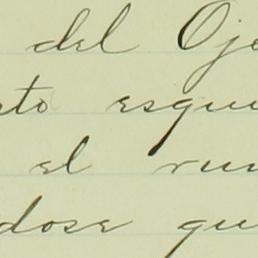 del Oje
to esqui
el rum
dose qu